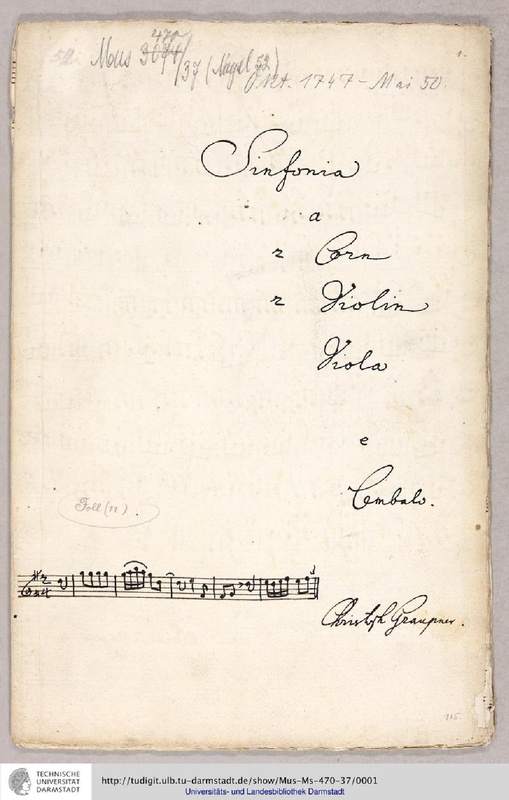 Mus 3074/37 (Nagel 52)
470
Okt. 1747 - Mai 50
1.
Sinfonia
a
2 Corn
2 Violin
Viola
e
Cembalo.
Foll (11).
Christoph Graupner.
TECHNISCHE
UNIVERSITÄT
DARMSTADT
http://tudigit.ulb.tu-darmstadt.de/show/Mus-Ms-470-37/0001
Universitäts- und Landesbibliothek Darmstadt